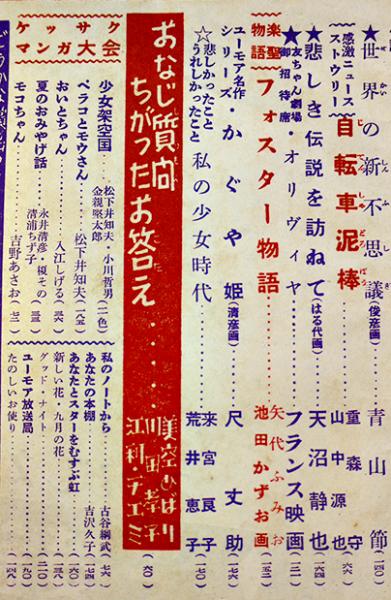 ☆世界の新不思議(俊彦画)……青山節
感激ニュースストウリー 自転車泥棒……重森守 山中源也(六六)
☆悲しき伝説を訪ねて(はる代画)…天沼静也
友ちゃん劇場御招待席・オリヴィヤ……フランス映画
楽聖物語 フォスター物語……矢代ふみお 池田かずお画
ユーモア名作シリーズ・かぐや姫(清彦画)…尺丈助
☆悲しかったことうれしかったこと 私の少女時代……来宮良子 荒井恵子
おなじ質問ちがったお答え……美空ひばり 川田孝子 江利・チエミ(六〇)
ケッサクマンガ大会
少女架空国……松下井知夫・小川哲男(二色)
ペラコとモウさん……松下井知夫 金親堅太郎
おいとちゃん……入江しげる
夏のおみやげ話……永井清彦・榎その 清浦ちず子
モコちゃん……吉野あさお
私のノートから……古谷綱武(七六)
あなたの本棚……吉沢久子
あなたとスターをむすぶ虹
新しい花・九月の花
グッド・ナイト
ユーモア放送局
たのしいお使り